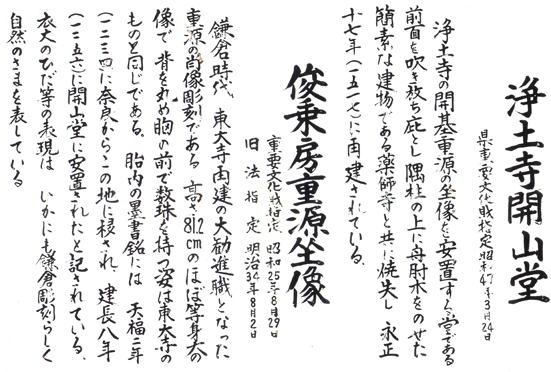 浄土寺開山堂
県重要文化財指定昭和47年3月24日
浄土寺の開基重源の坐像を安置する堂である
前面を吹き放ち庇とし隅柱の上に舟肘木をのせた
簡素な建物である薬師寺と共に焼失し永正
十七年(一五一七)に再建されている。
俊乗房重源坐像
重要文化財指定 昭和25年8月29日
旧法指定 明治34年8月2日
鎌倉時代 東大寺再建の大勧進職となった
重源の肖像彫刻である 高さ81.2cmのほぼ等身大の
像で 背を丸め胸の前で数珠を持つ姿は東大寺の
ものと同じである。胎内の墨書銘には 天福二年
(一二三四)に奈良からこの地に移され、建長八年
(一二五六)に開山堂に安置されたと記されている。
衣文のひだ等の表現は いかにも鎌倉彫刻らしく
自然のさまを表している